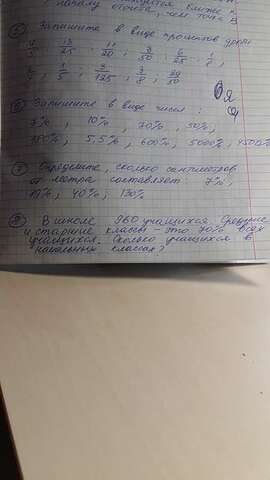 к началу отсчёта, чем точка В
⑤ Запишите в виде процентов дроби
; 13/25 ; 11/20 ; 3/50 ; 6/25 ; 1/8 ;
; 1/5 ; 3/125 ; 3/8 ; 29/50
⑥ Запишите в виде чисел :
7% , 10% , 70% , 50% ,
5,5% , 600% , 5000% ,
⑦ Определите, сколько сантиметров
от метра составляет: 7% ;
19% , 40% , 130%
В школе 960 учащихся. Средние
и старшие классы - это 70% всех
учащихся. Сколько учащихся в
начальных классах?